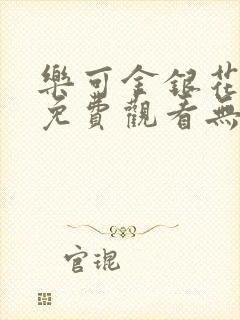 樂可金銀花
免費觀看無
官琨